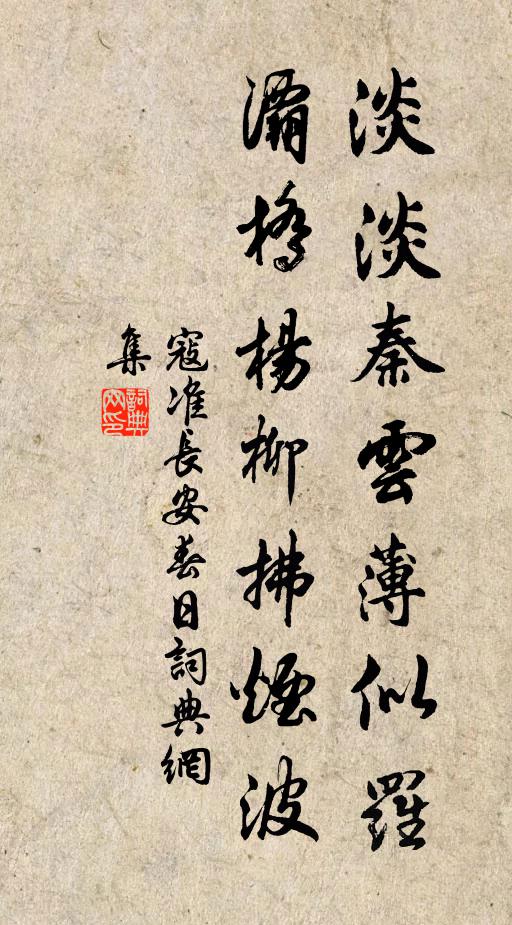 淡淡秦雲薄似羅
灞橋楊柳拂煙波
寇准長安春日詞典網
集
詞典
网印